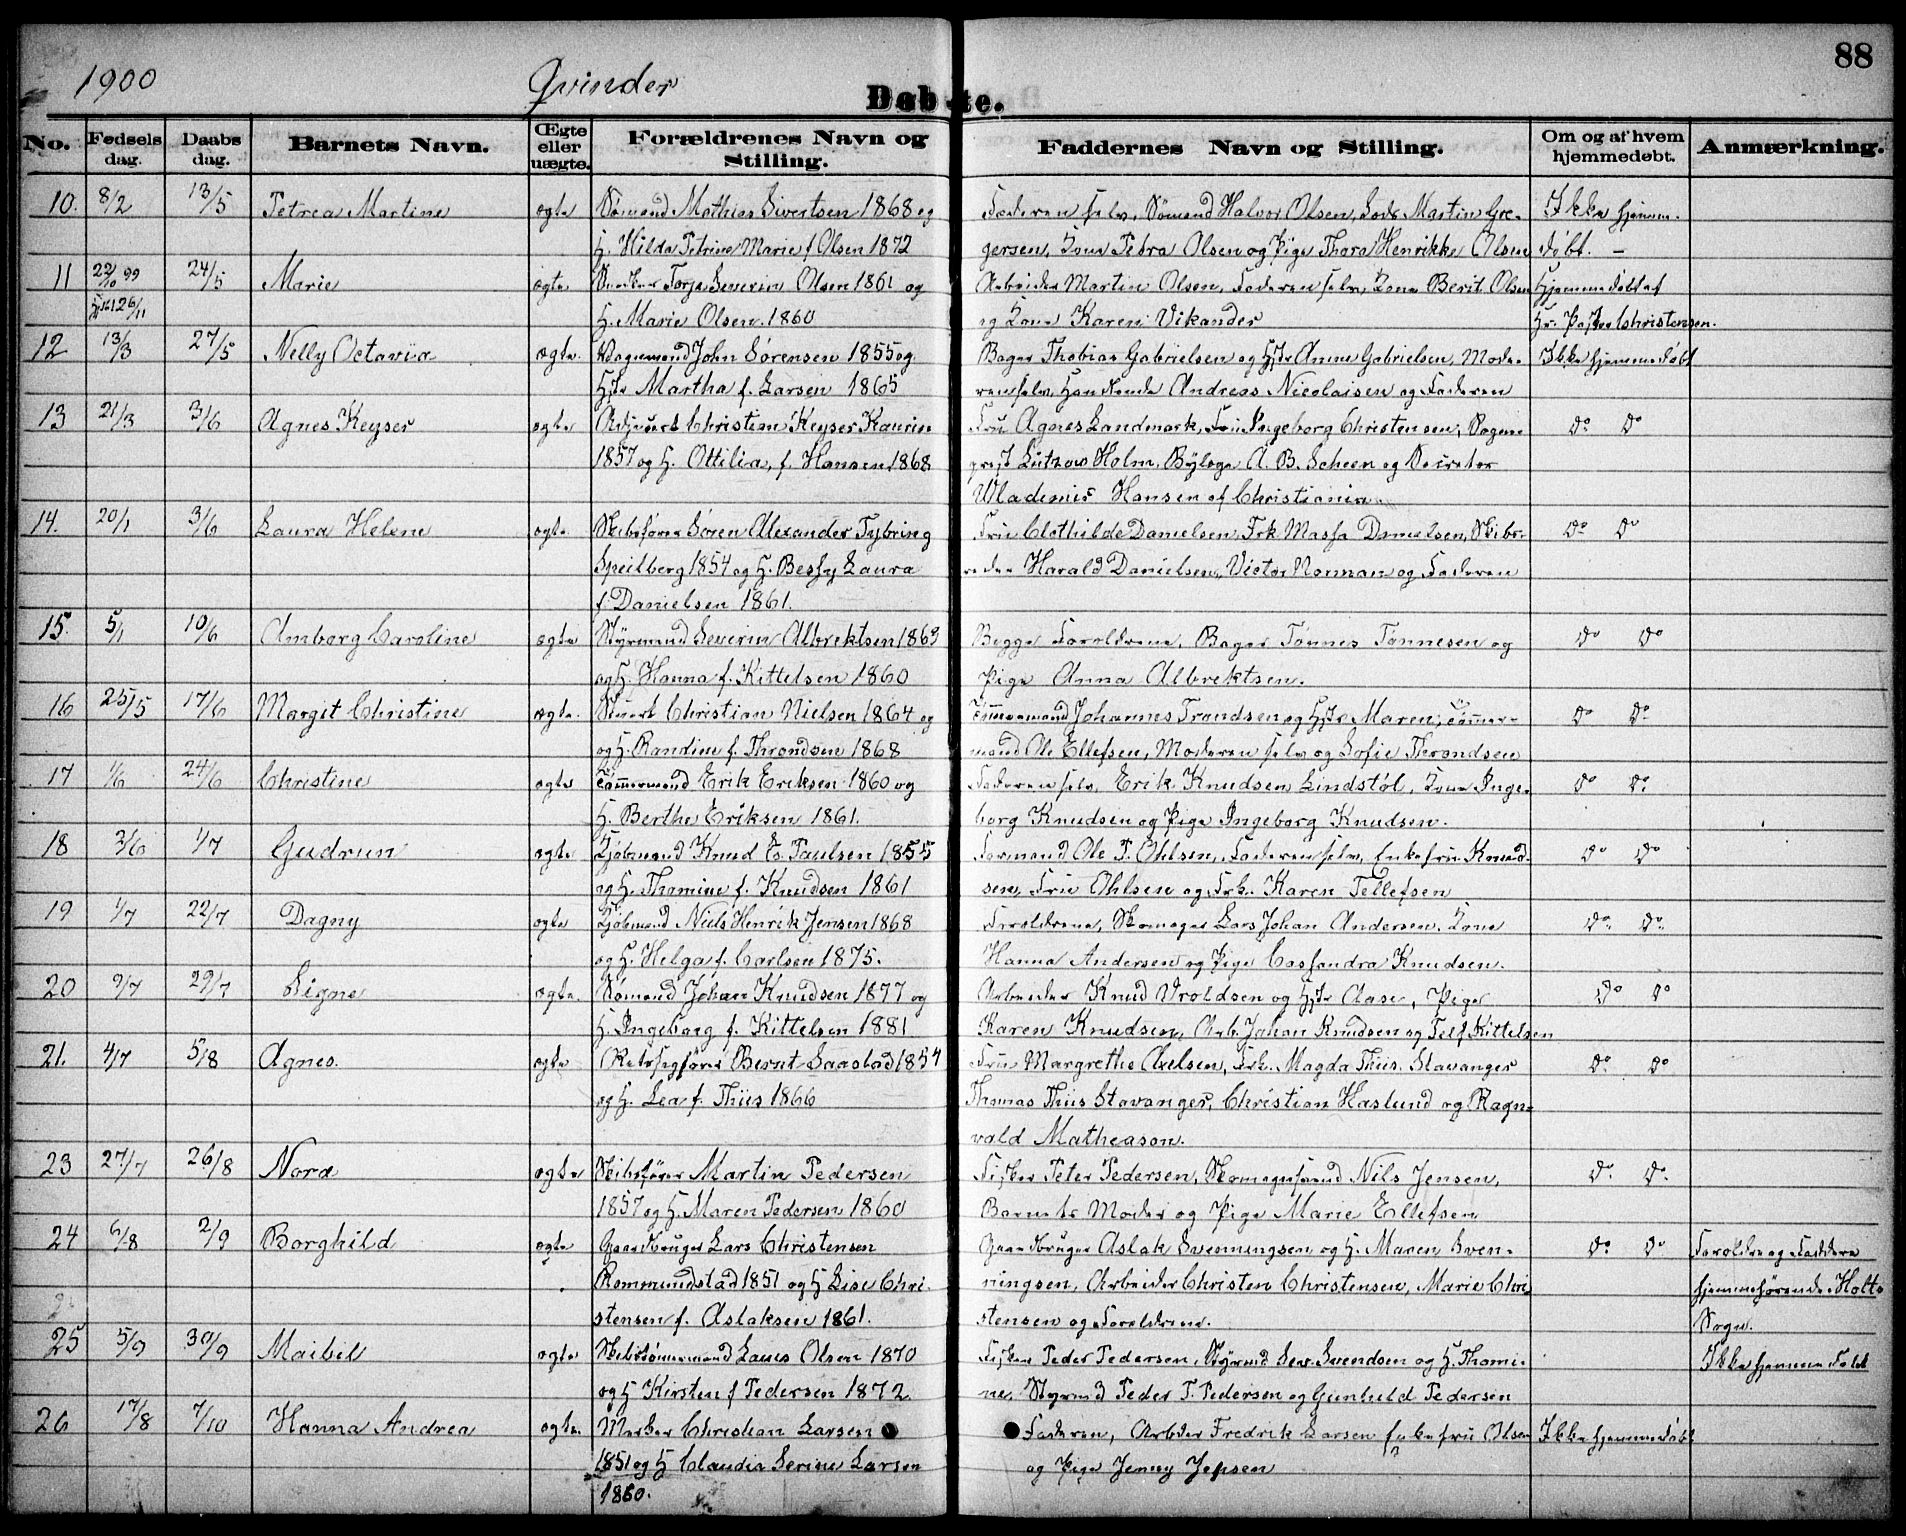 88
1900 Qvinder
Døbte.
No. Fødsels dag. Daabs dag. Barnets Navn. Œgte eller uægte. Forældrenes Navn og Stilling. Faddernes Navn og Stilling. Om og af hvem hjemmedøbt. Anmærkning.
10. 8/2 13/5 Petrea Martine ægte Sømand Mathias Sivertsen 1868 og Faderen selv, Sømand Halvor Olsen, Lods Martin Gre- Ikke hjemme-
H. Hilda Petrine Marie f Olsen 1872 gersen, Kone Petra Olsen og Pige Thora Henrikke Olsen døbt. —
11 22/10 99 24/5 Marie ægte Snedker Torje Severin Olsen 1861 og Arbeider Martin Olsen, Faderen selv, Kone Berit Olsen Hjemmedøbt af
26/11 H. Marie Olsen. 1860 og Kone Karen Vikander Hr. Christensen.
12 13/3 27/5 Nelly Octavia ægte. John Sørensen 1855 og Bager Thobias Gabrielsen og Hstr Anne Gabrielsen, Mode- Ikke hjemmedøbt
Hstr Martha f. Larsen 1865 ren selv, Handlende Andreas Nicolaisen og Faderen
13 21/3 3/6 Agnes Keyser ægte Adjunct Christian Keyser Kaurin Fru Agnes Landmark, Fru Ingeborg Christensen, Sogne- Do Do
1857 og H. Ottilia, f. Hansen 1868 prest Lützow Holm, Byløge A. B. Scheen og
Wlademir Hansen af Christiania.
14. 20/1 3/6 Laura Helene ægte. Skibsfører Søren Alexander Tybring Fru Clothilde Danielsen, Frk Massa Danielsen, Skibs- Do Do
Speilberg 1854 og H. Bessy Laura reder Harald Danielsen, Victor Norman og Faderen
f. Danielsen 1861.
15. 5/1 10/6 Amborg Caroline ægte Styrmand Severin Albrektsen 1863 Begge Forældrene, Bager Tønnes Tønnesen og Do Do
og H. Hanna f. Kittelsen 1860 Pige Anna Albrektsen.
16 25/5 17/6 Margit Christine ægte. Stuert Christian Nielsen 1864 og Tømmermand Johannes Trondsen og Hstr Maren, Tømmer- Do Do
og H. Randine f. Throndsen 1868 mand Ole Ellefsen, Moderen selv og Sofie Throndsen
17 1/6 24/6 Christine ægte Tømmermand Erik Eriksen 1860 og Faderen selv, Erik Knudsen Lindstøl, Kone Inge- Do Do
H. Berthe Eriksen 1861. borg Knudsen og Pige Ingeborg Knudsen.
18 3/6 1/7 Gudrun ægte Kjøbmand Knud E. Paulsen 1855 Formand Ole P. Ohlsen, Faderen selv, Enkefru Knud- Do Do
og H. Thomine f. Knudsen 1861 sen, Fru Ohlsen og Frk. Karen Tellefsen
19 1/7 22/7 Dagny ægte Kjøbmand Niels Henrik Jensen 1868 Forældrene, Skomager Lars Johan Andersen, Kone Do Do
og H. Helga f. Carlsen 1875. Hanna Andersen og Pige Cassandra Knudsen.
20 9/7 29/7 Signe ægte. Sømand Johan Knudsen 1877 og Arbeider Knud Vroldsen og Hstr Aase, Pige Do Do
H. Ingeborg f. Kittelsen 1881 Karen Knudsen, Arb. Johan Knudsen og Telf Kittelsen
21. 4/7 5/8 Agnes. ægte Retssagfører Bernt Saastad 1854 Fru Margrethe Axelsen, Frk. Magda Thiis Stavanger Do Do
og H. Lea f. Thiis 1866 Thomas Thiis Stavanger, Christian Haslund og Ragn-
vald Matheason.
23 27/7 26/8 Nora ægte Skibsfører Martin Pedersen Fisker Peter Pedersen, Skomagersvend Nils Jensen, Do Do
1857 og H. Maren Pedersen 1860 Barnets Moder og Pige Marie Ellefsen
24 6/8 2/9 Borghild ægte Gaardbruger Lars Christensen Gaardbruger Aslak Svenningsen og H. Maren Sven- Do Do Forældre og Faddere
Rommundstad 1851 og H Lise Chri- ningsen, Arbeider Christen Christensen, Marie Chri- hjemmehørende Holts
stensen f. Aslaksen 1861. stensen og Forældrene. Sogn.
25 5/9 30/9 Maibel ægte Skibstømmermand Laurs Olsen 1870 Fisker Peder Pedersen, Styrmd Sev. Svendsen og H. Thomi- Ikke hjemmedøbt
og H Kirsten f Pedersen 1872 ne, Styrmd Peder T. Pedersen og Gunhild Pedersen
26 17/8 7/10 Hanna Andrea ægte. Murer Christian Larsen Faderen, Arbeder Fredrik Larsen Enkefru Olsen Ikke hjemmedøbt
1851 og H Claudia Serine Larsen og Pige Jenny Jepsen
1860.